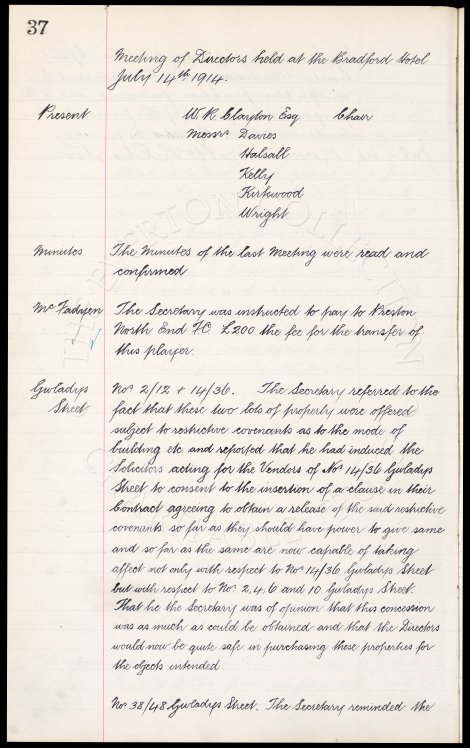 37
Meeting of Directors held at the Bradford Hotel
July 14th 1914.
Present W. R. Clayton Esq Chair
Messrs. Davies
Halsall
Kelly
Kirkwood
Wright
Minutes The Minutes of the last Meeting were read and
confirmed
McFadyen The Secretary was instructed to pay to Preston
North End F.C. £200 the fee for the transfer of
this player.
Gwladys Nos 2/12 & 14/36. The Secretary referred to the
Street fact that these two lots of property were offered
subject to restrictive covenants as to the mode of
building etc and reported that he had induced the
Solicitors acting for the Vendors of Nos 14/36 Gwladys
Street to consent to the insertion of a clause in their
Contract agreeing to obtain a release of the said restrictive
covenants so far as they should have power to give same
and so far as the same are now capable of taking
affect not only with respect to Nos 14/36 Gwladys Street
but with respect to Nos 2, 4, 6 and 10 Gwladys Street.
That he the Secretary was of opinion that this concession
was as much as could be obtained and that the Directors
would now be quite safe in purchasing these properties for
the objects intended.
Nos 38/48 Gwladys Street. The Secretary reminded the